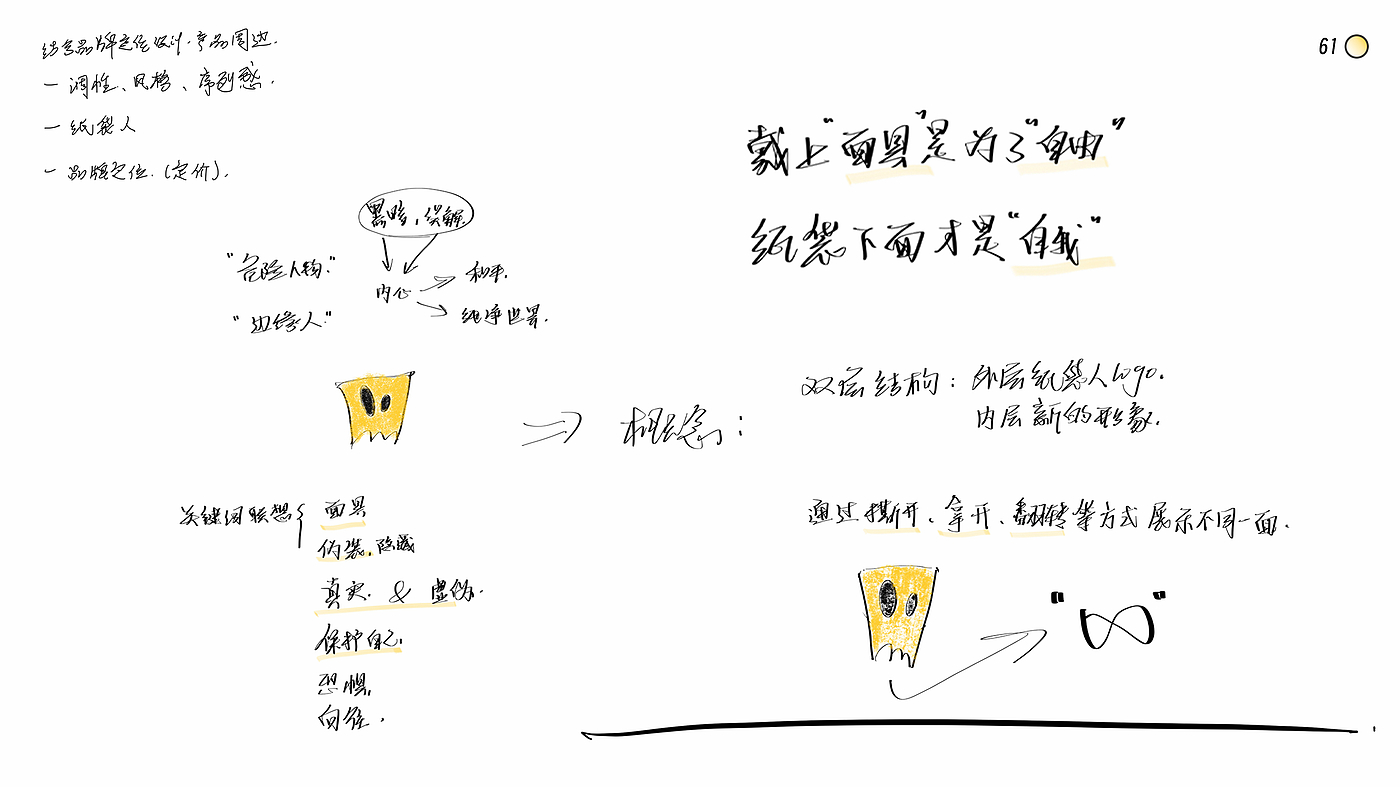 结合品牌定位设计.产品周边.
一 调性、风格、序列感.
一 纸袋人
一 品牌定位.(定价).
61
戴上"面具"是为了"自由"
纸袋下面才是"自我"
黑暗,误解
"危险人物."
"边缘人."
内心
和平.
纯净世界.
概念:
双层结构:外层纸袋人logo.
内层新的形象.
通过撕开、拿开、翻转等方式展示不同一面.
关键词联想
面具
伪装,隐藏
真实. & 虚伪.
保护自己.
恐惧,
"∞"